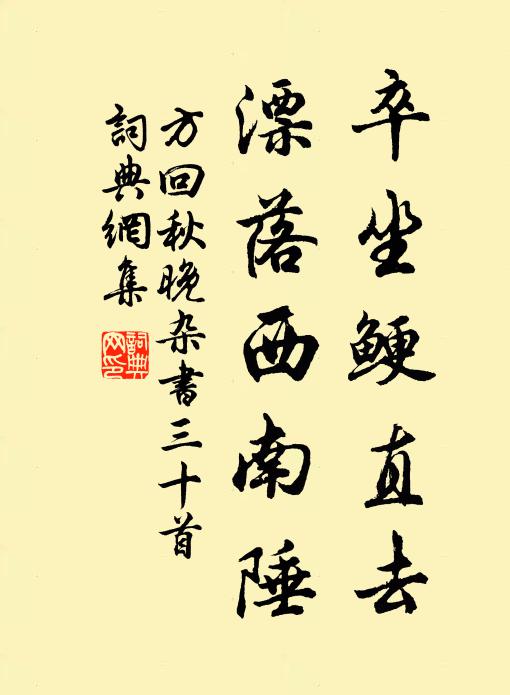 卒坐鲠直去
漂落西南陲
方回秋晚杂書三十首
詞典網集
詞典網印